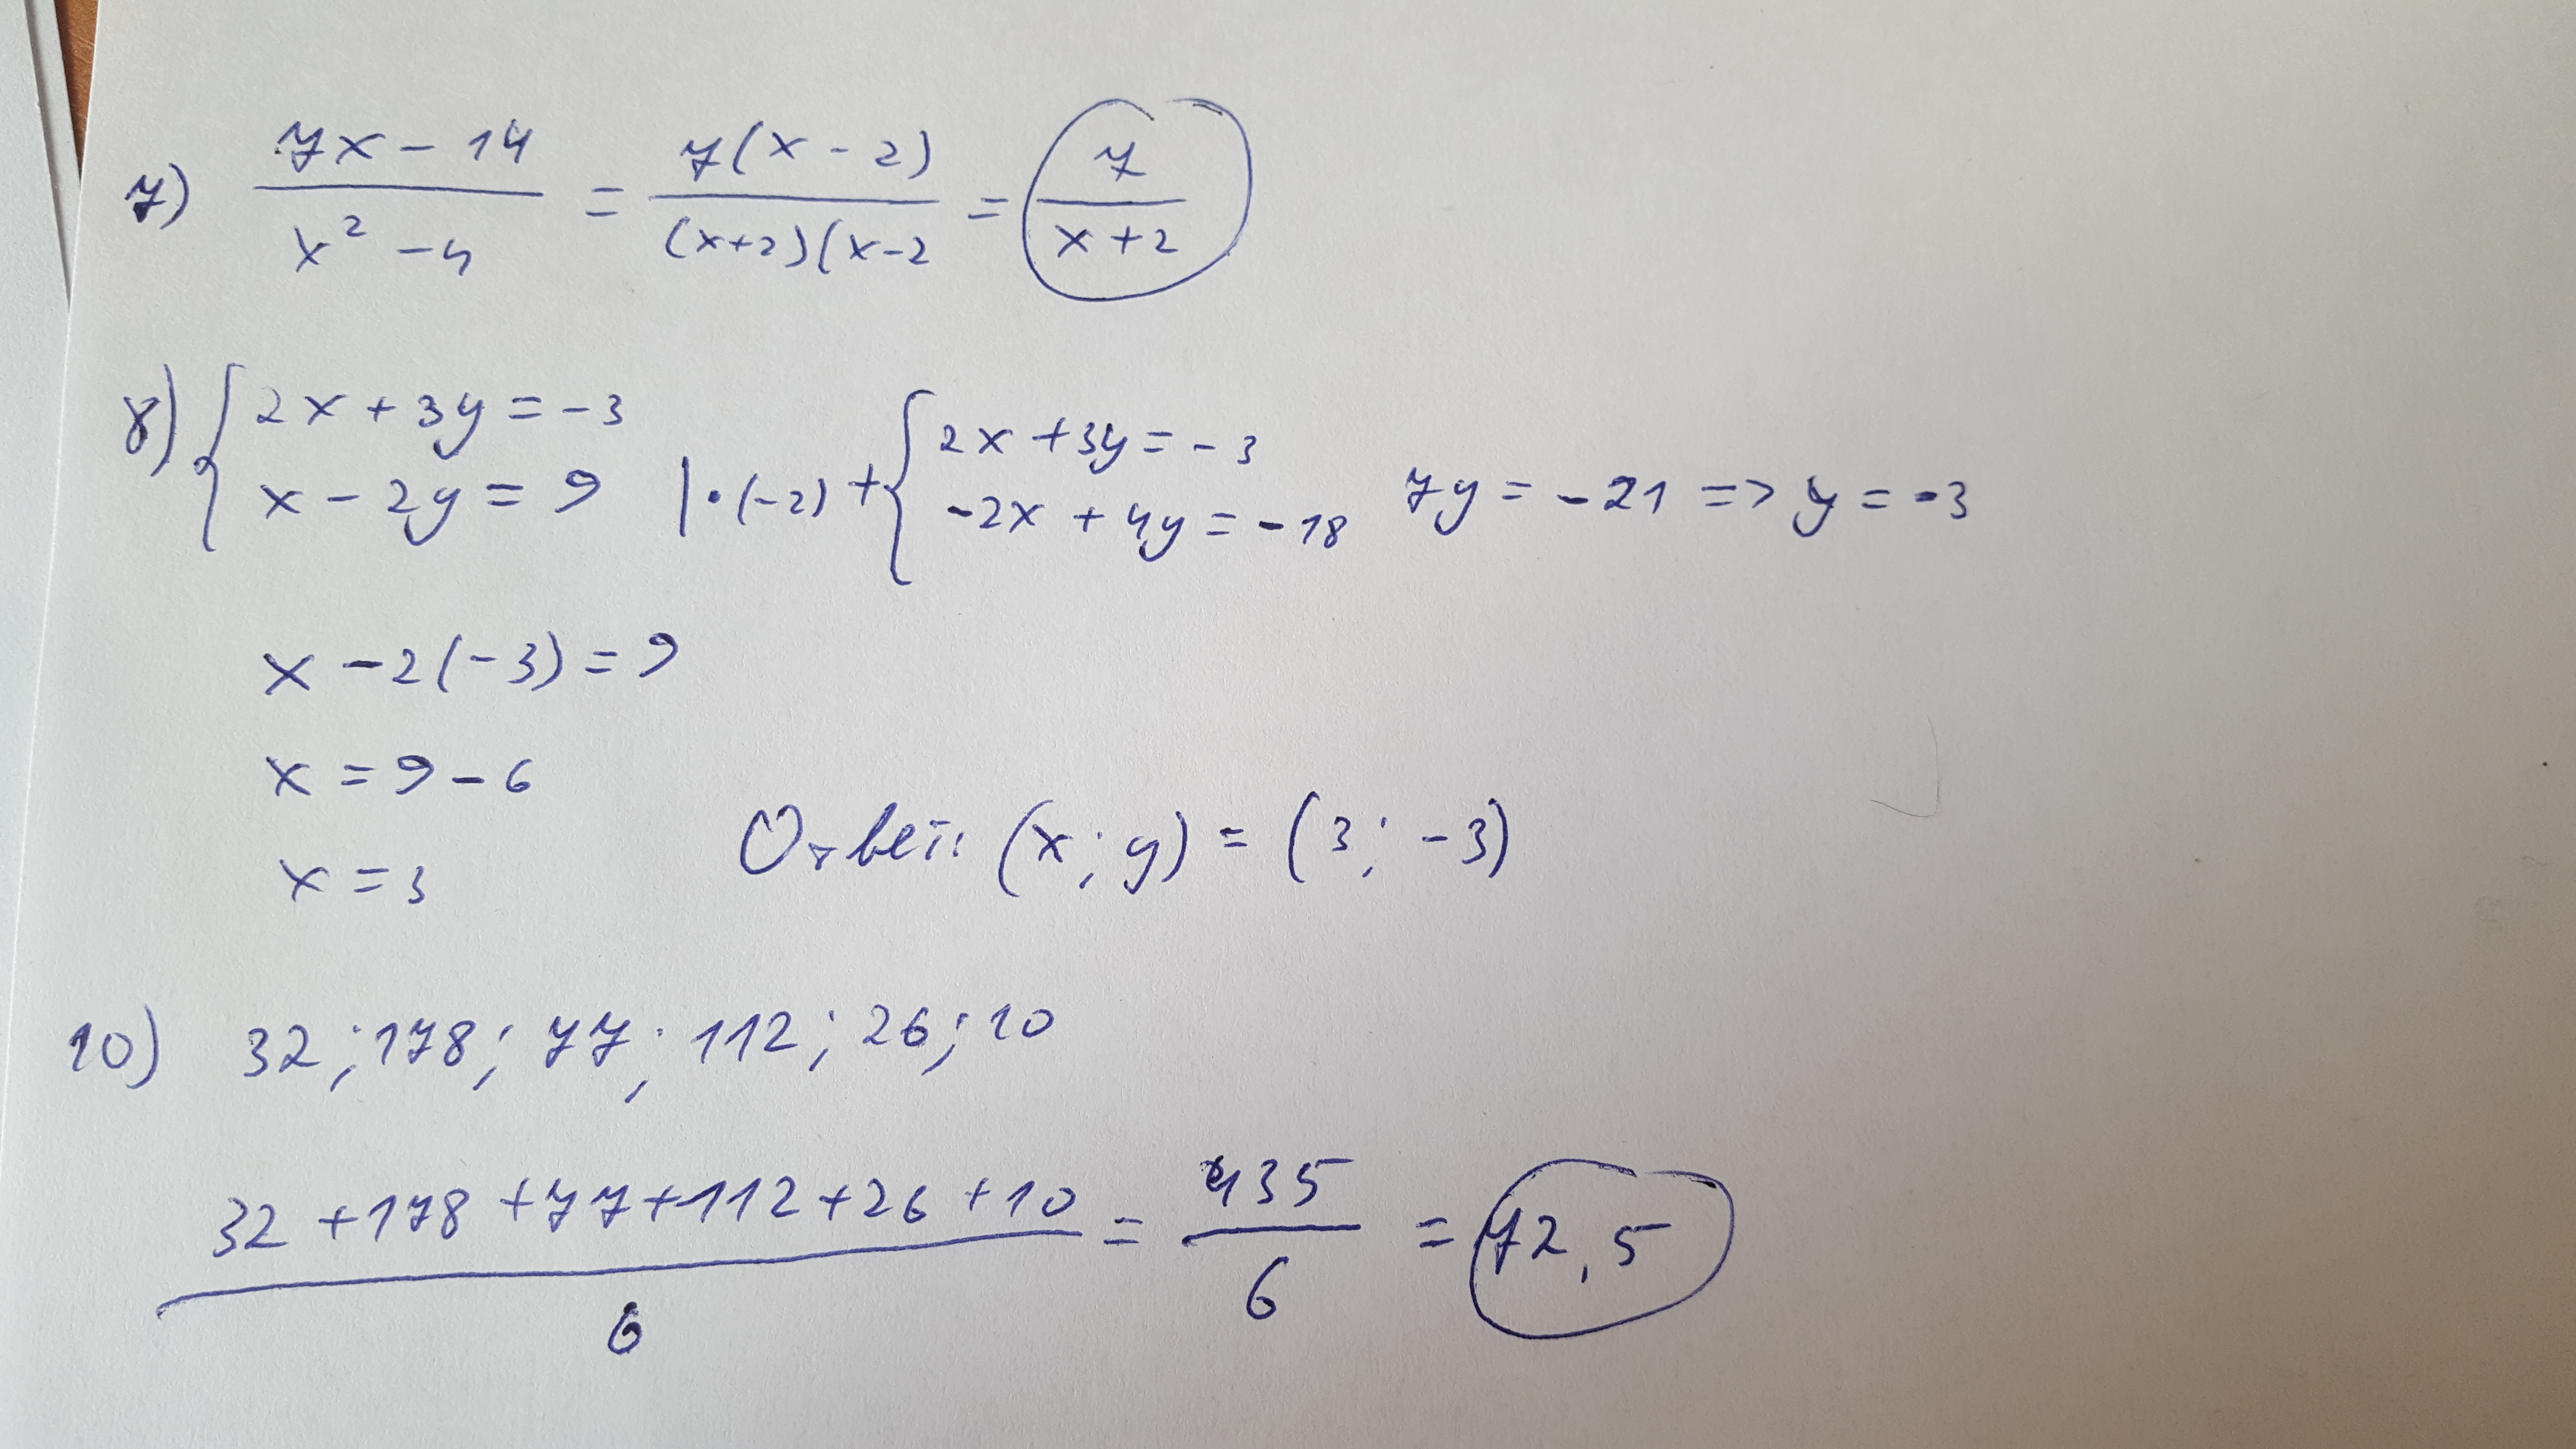 7) (7x - 14)/(x² - 4) = 7(x - 2)/((x+2)(x-2) = 7/(x+2)
8) { 2x + 3y = -3
x - 2y = 9 | • (-2) + { 2x + 3y = -3
-2x + 4y = -18 7y = -21 => y = -3
x - 2(-3) = 9
x = 9 - 6
x = 3 Ответ: (x; y) = (3; -3)
10) 32; 178; 77; 112; 26; 10
(32 + 178 + 77 + 112 + 26 + 10)/6 = 435/6 = 72,5